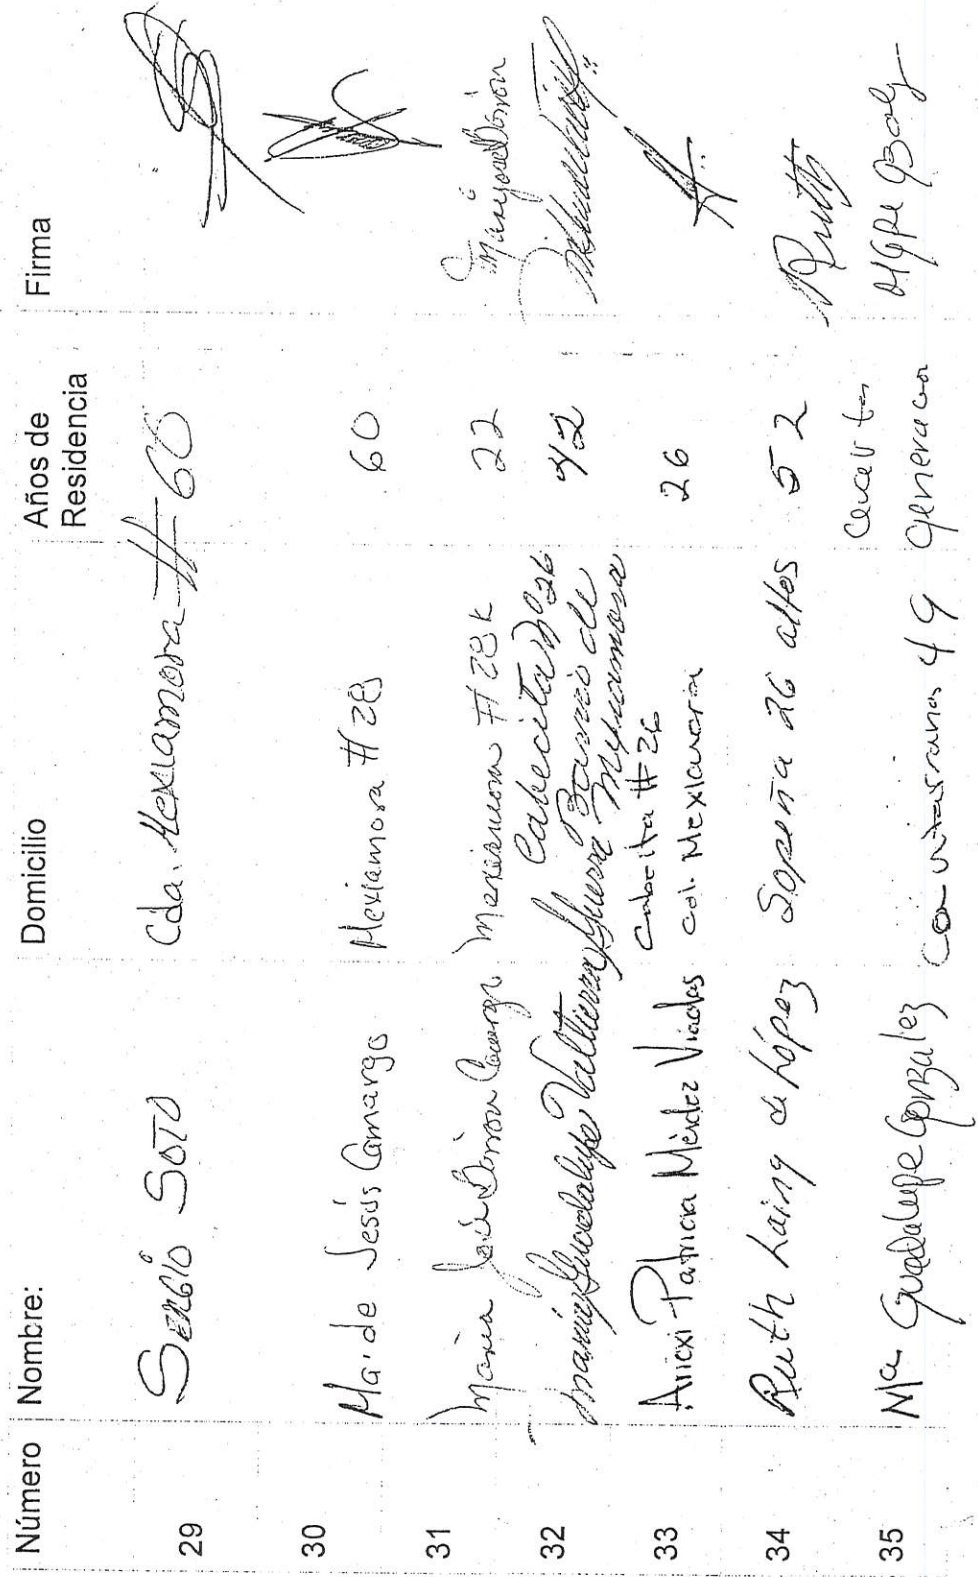 Número Nombre: Domicilio Años de Residencia Firma
29 Sergio Soto Cda. Mexiamora # 60
30 Ma. de Jesús Camargo Mexiamora # 28 60
31 María José Barrón Camargo Mexiamora # 28k 22
32 María Guadalupe Valtierra Guerra Cabecita No 26 Barrio de Mexiamora 42
33 Patricia Méndez Cabecita # 26 col. Mexiamora 26
34 Ruth Laing de López Sopeña 26 altos 52 Ruth
35 Ma Guadalupe Gonzalez 49 cuarta generacion